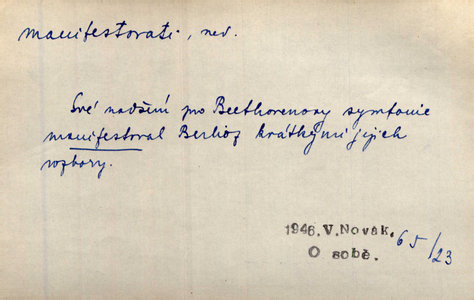 manifestovati, ned.
Své nadšení pro Beethovenovy symfonie
manifestoval Berlioz krátkými jejich
rozbory.
1946. V. Novák, 65/23
O sobě.